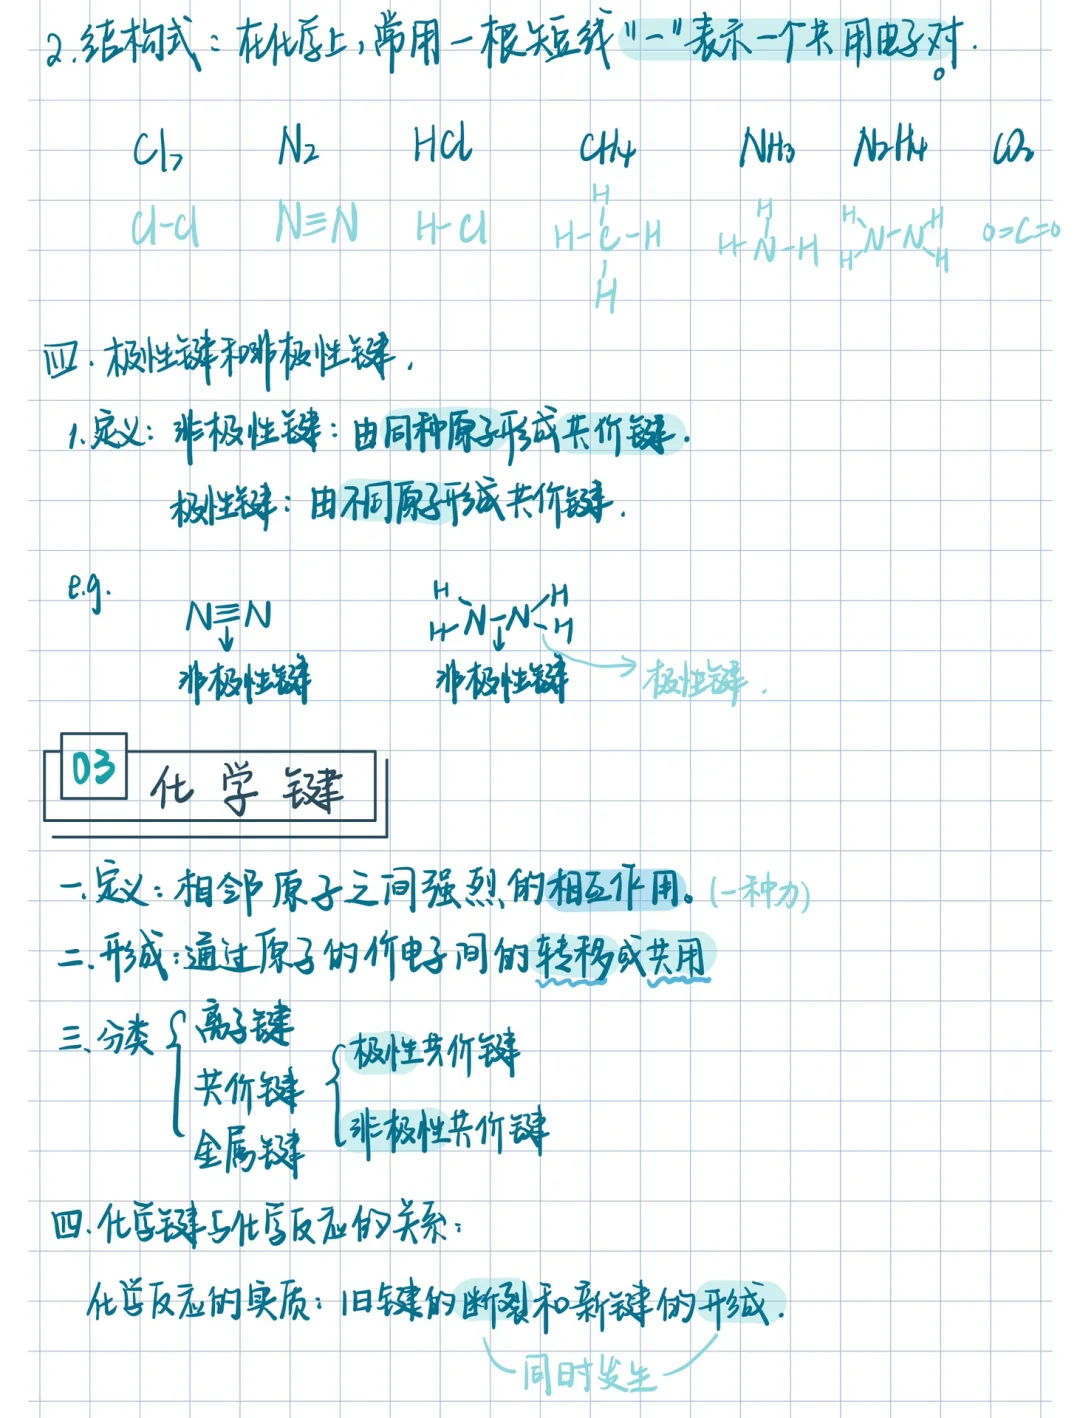 2.结构式：在化学上,常用一根短线"—"表示一个共用电子对.
Cl₂ N₂ HCl CH₄ NH₃ N₂H₄ CO₂
H H H H
Cl-Cl N≡N H-Cl H-C-H H-N-H N-N O=C=O
H H H
四.极性键和非极性键.
1.定义：非极性键：由同种原子形成共价键.
极性键：由不同原子形成共价键.
e.g.
H H
N≡N N-N
H H
非极性键 非极性键 极性键.
03 化学键
一.定义：相邻原子之间强烈的相互作用。(一种力)
二.形成：通过原子的价电子间的转移或共用
三、分类 离子键
极性共价键
共价键
非极性共价键
金属键
四.化学键与化学反应的关系：
化学反应的实质：旧键的断裂和新键的形成.
同时发生